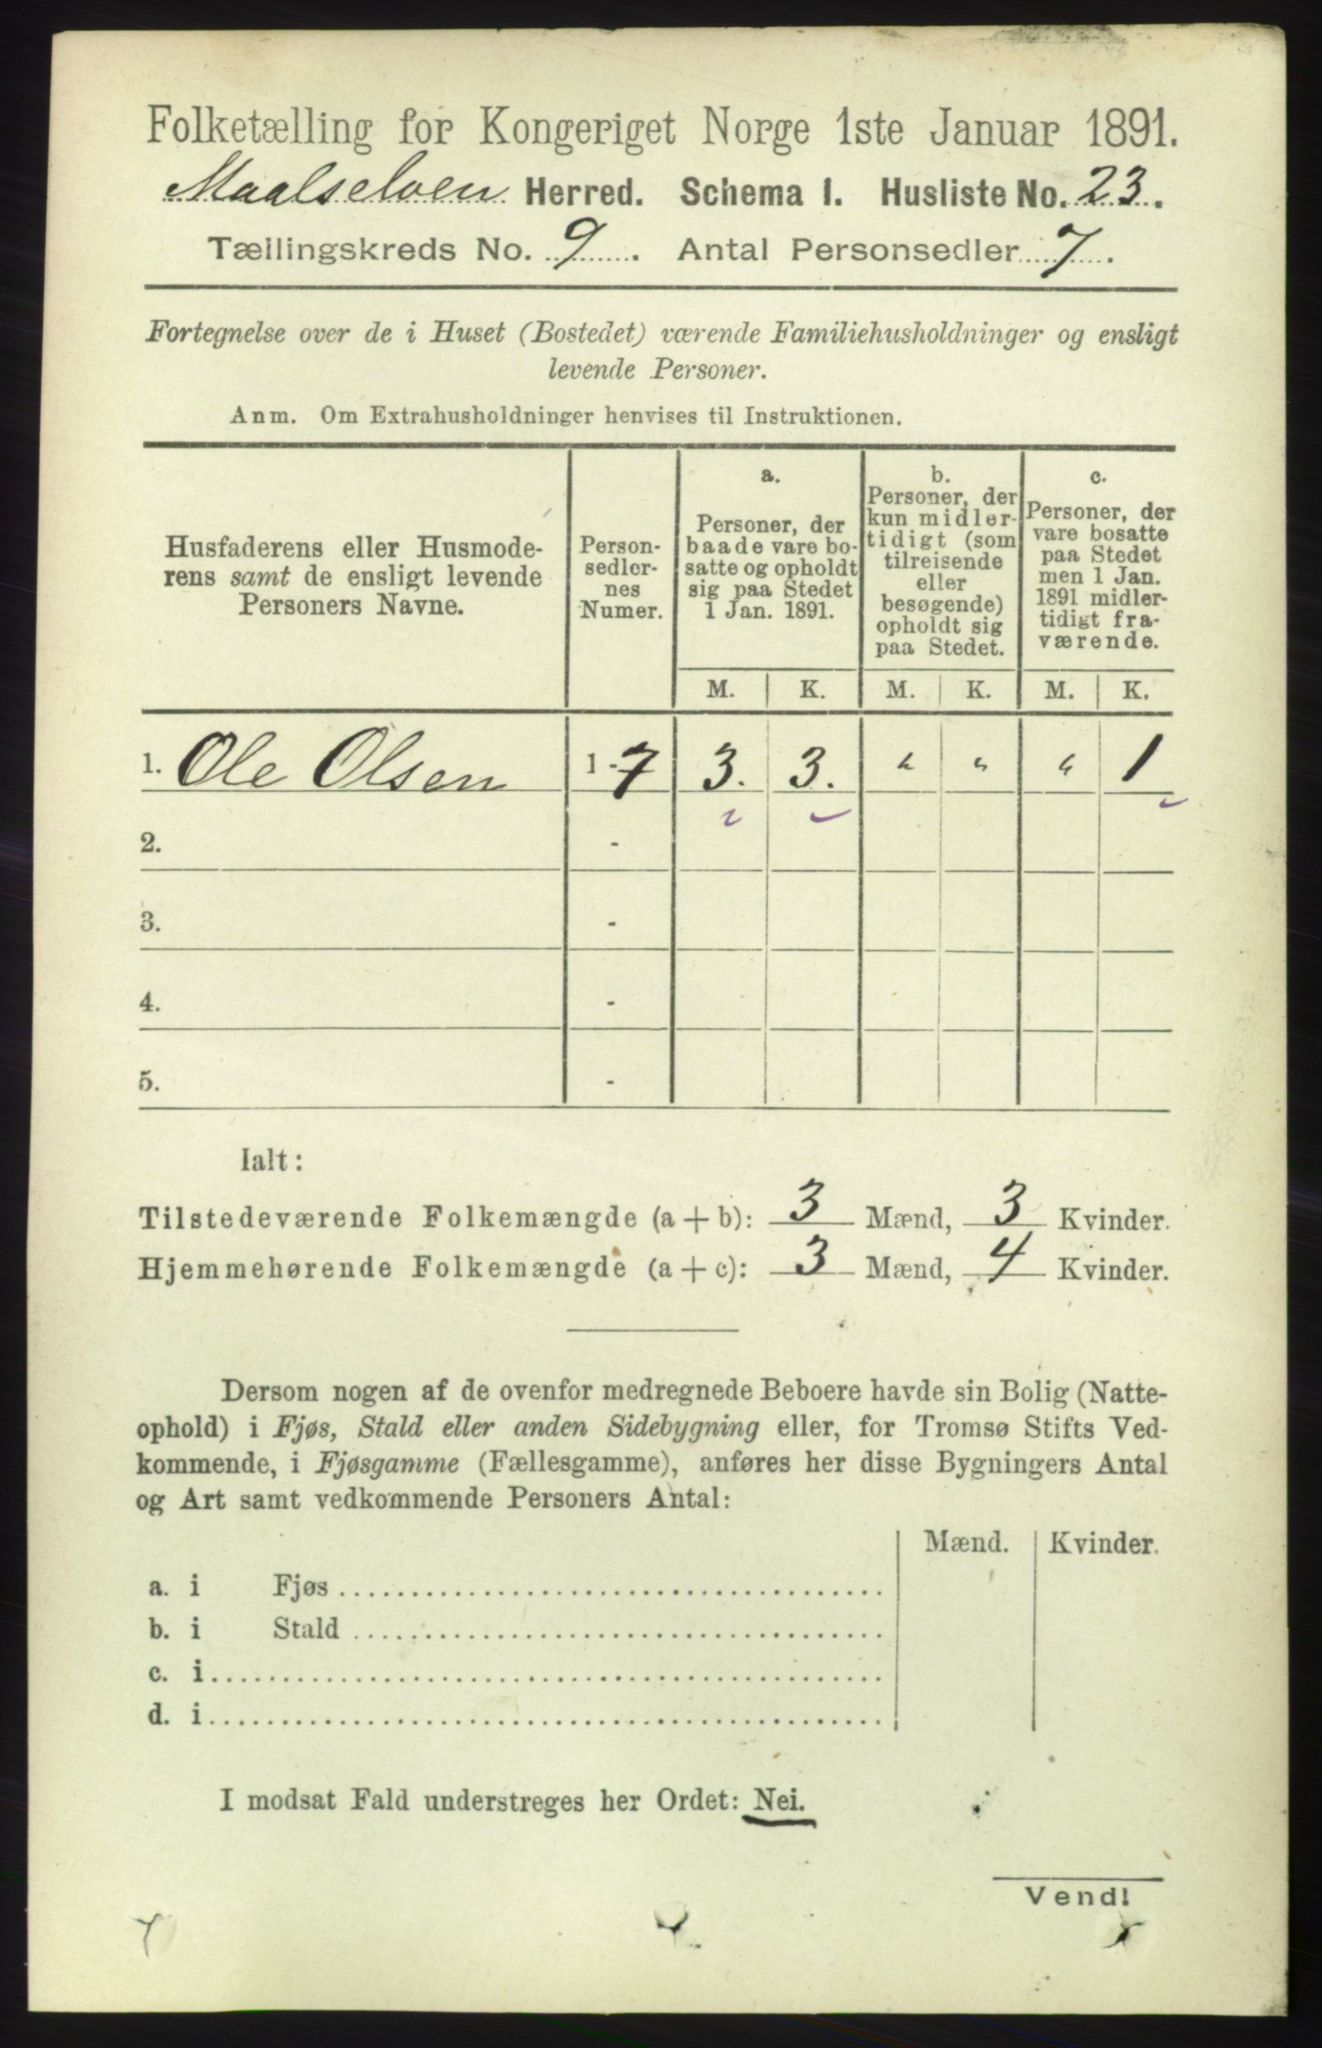 Folketælling for Kongeriget Norge 1ste Januar 1891.
Maalselven Herred. Schema I. Husliste No. 23.
Tællingskreds No. 9. Antal Personsedler 7.
Fortegnelse over de i Huset (Bostedet) værende Familiehusholdninger og ensligt
levende Personer.
Anm. Om Extrahusholdninger henvises til Instruktionen.
Husfaderens eller Husmode-
rens samt de ensligt levende
Personers Navne.
Person-
sedler-
nes
Numer.
a.
Personer, der
baade vare bo-
satte og opholdt
sig paa Stedet
1 Jan. 1891.
b.
Personer, der
kun midler-
tidigt (som
tilreisende
eller
besøgende)
opholdt sig
paa Stedet.
c.
Personer, der
vare bosatte
paa Stedet
men 1 Jan.
1891 midler-
tidigt fra-
værende.
M. K. M. K. M. K.
1. Ole Olsen 1-7 3. 3. " " " 1
2. -
3. -
4. -
5. -
Ialt:
Tilstedeværende Folkemængde (a + b): 3 Mænd, 3 Kvinder.
Hjemmehørende Folkemængde (a + c): 3 Mænd, 4 Kvinder.
Dersom nogen af de ovenfor medregnede Beboere havde sin Bolig (Natte-
ophold) i Fjøs, Stald eller anden Sidebygning eller, for Tromsø Stifts Ved-
kommende, i Fjøsgamme (Fællesgamme), anføres her disse Bygningers Antal
og Art samt vedkommende Personers Antal:
Mænd. Kvinder.
a. i Fjøs
b. i Stald
c. i
d. i
I modsat Fald understreges her Ordet: Nei.
Vend!